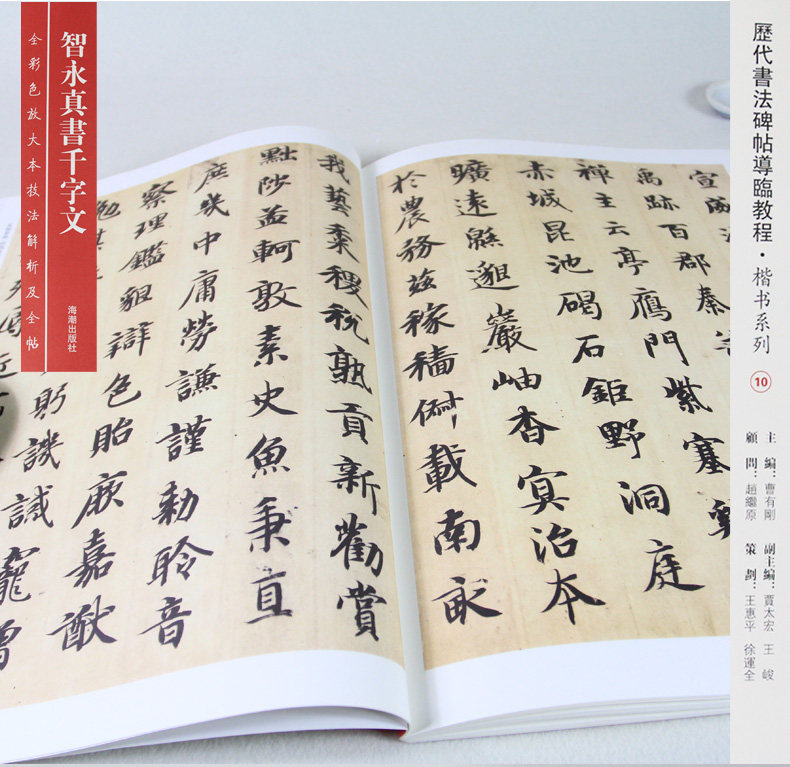 歷代書法碑帖導臨教程·楷书系列 10
主 編：曹有剛 副主編：賈太宏 王 峻
顧 問：趙繼原 策 劃：王惠平 徐運全
智永真書千字文
全彩色放大本技法解析及全帖
海潮出版社
宣威
禹跡百郡秦
禪主云亭鴈門紫塞雞
赤城昆池碣石鉅野洞庭
曠遠緜邈巖岫杳冥治本
於農務茲稼穡俶載南畝
我藝黍稷稅熟貢新勸賞
黜陟孟軻敦素史魚秉直
庶幾中庸勞謙謹勑聆音
察理鑑貌辯色貽厥嘉猷
勉其
躬譏誡寵增
辱近